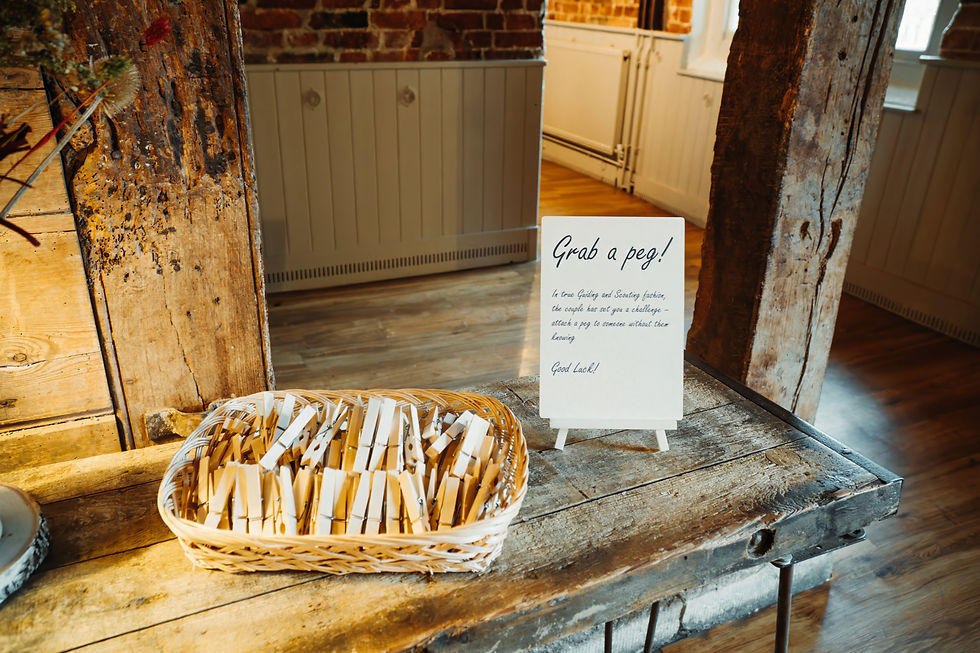 Grab a peg!
In true Guiding and Scouting fashion,
the couple has set you a challenge –
attach a peg to someone without them
knowing
Good Luck!